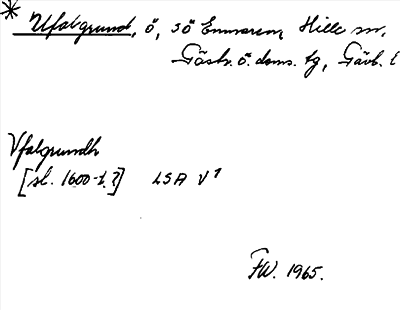 * Ufalgrund, ö, sö Eumarem, Hille sn,
Gästr. ö. doms. tg, Gävb. l
Vfalgrundh
[sl. 1600-t.?] LSA V¹
FW. 1965.